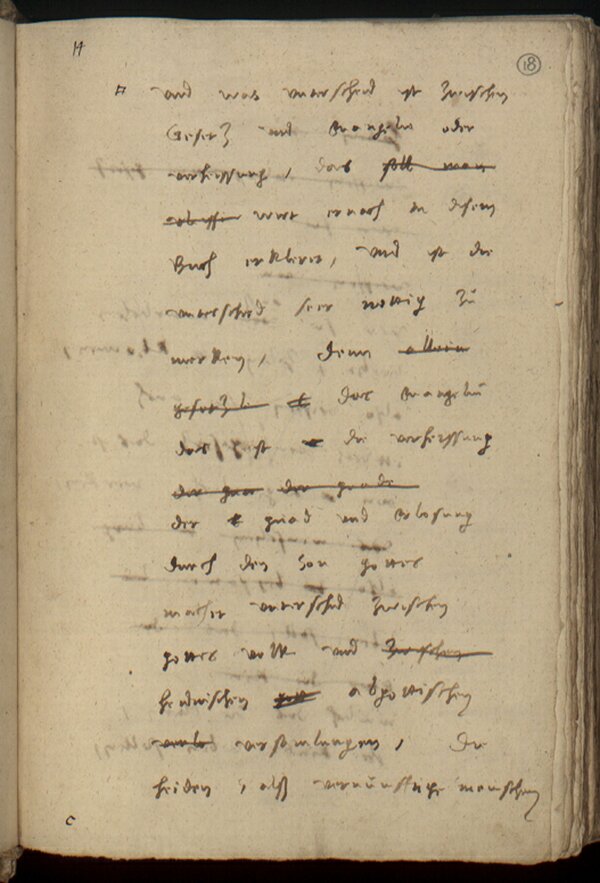 14
18
und was underscheid ist zwischen
Gesetz und Evangelio oder
verheissung, das soll man
wirt ernach in disem
Buch erkleret, und ist die
underscheid seer nottig zu
merken, denn allein
gesetz das Evangeliū
das ist die verheissung
der gnad der gnade
der gnad und Erlosung
durch den Son gottes
machet underschid zwischen
gottes volk und zwischen
heidnischen gott abgottischen
versamlungen, Die
heiden, alss vernunfftige menschen
c